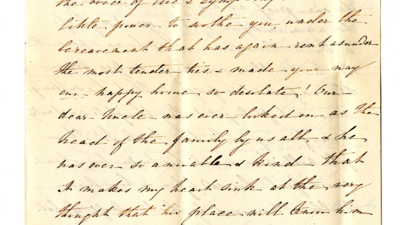 the voice of love & sympathy
little power to soothe you, under the
bereavement that has again rent asunder
the most tender ties & made your
our happy home so desolate! Our
dear Uncle was ever looked on as the
head of the family by us all, & he
was ever so amiable & kind that
it makes my heart sink at the very
thought that his place will know him